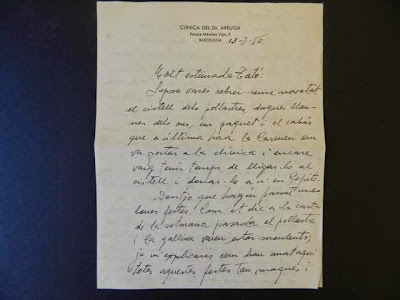 CLINICA DEL Dr. ARRUGA
Pasaje Méndez Vigo, 3
BARCELONA
Molt estimada Tató:
Suposo vares rebrer sense novetat
el cistell dels pollastres, dugues llau-
nes dels ous, un paquet i el cabàs
que a última hora la Carmen em
va portar a la clínica i encare
vaig tenir temps de lligar-lo al
cistell i donar-lo a'n en Pepito.
Desitjo que hagueu passat unes
bones festes! Com et dic a la carta
de la setmana passada el pollastre
i la gallina varen estar suculents;
ja m'explicaras com han anat aquí
totes aquestes festes tan maques i